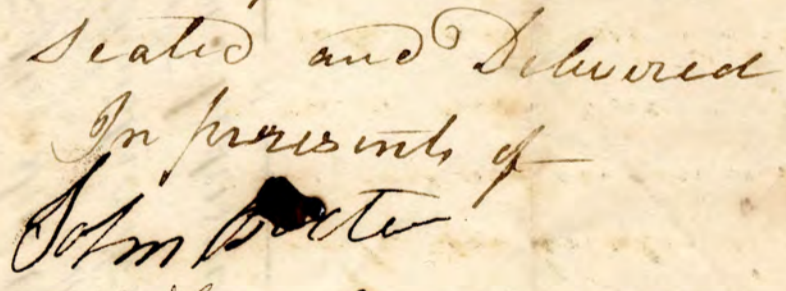 Sealed and Delivered
In presents of
John